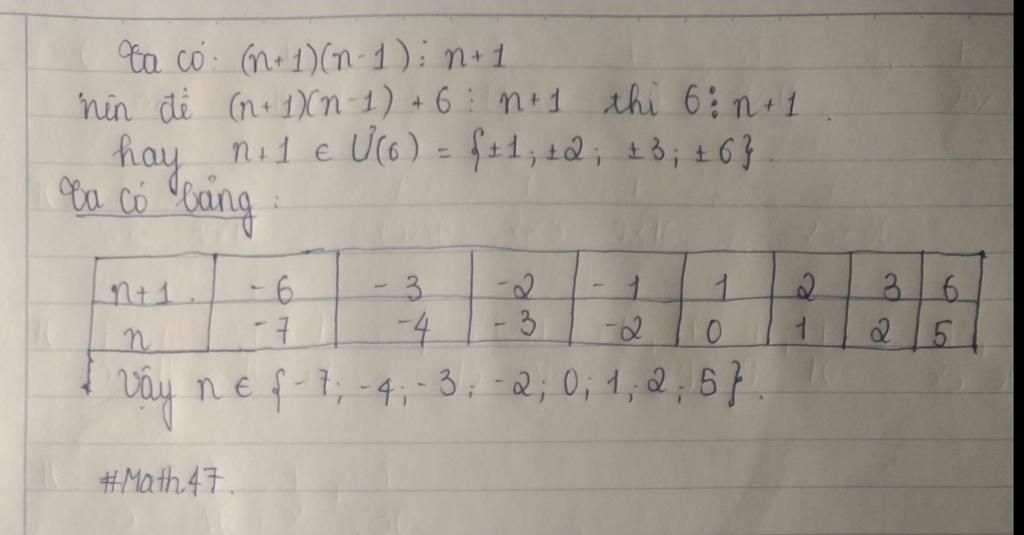 Ta có: (n+1)(n-1) ⋮ n+1
nên để (n+1)(n-1) + 6 ⋮ n+1 thì 6 ⋮ n+1.
hay n+1 ∈ Ư(6) = {±1; ±2; ±3; ±6}.
Ta có bảng:
n+1. -6 -3 -2 -1 1 2 3 6
n -7 -4 -3 -2 0 1 2 5
Vậy n ∈ {-7; -4; -3; -2; 0; 1; 2; 5}.
#Math47.